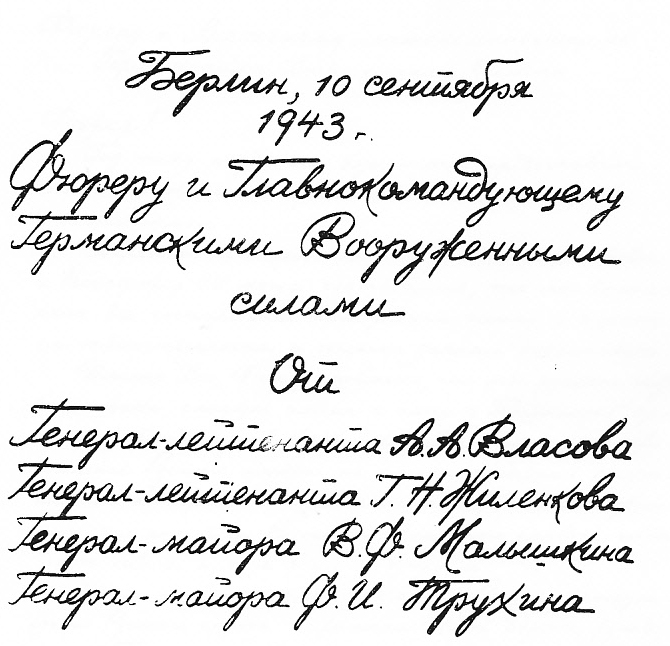 Берлин, 10 сентября
1943 г.
Фюреру и Главнокомандующему
Германскими Вооруженными
силами
От
Генерал-лейтенанта А.А. Власова
Генерал-лейтенанта Г.Н. Жиленкова
Генерал-майора В.Ф. Малышкина
Генерал-майора Ф.И. Трухина